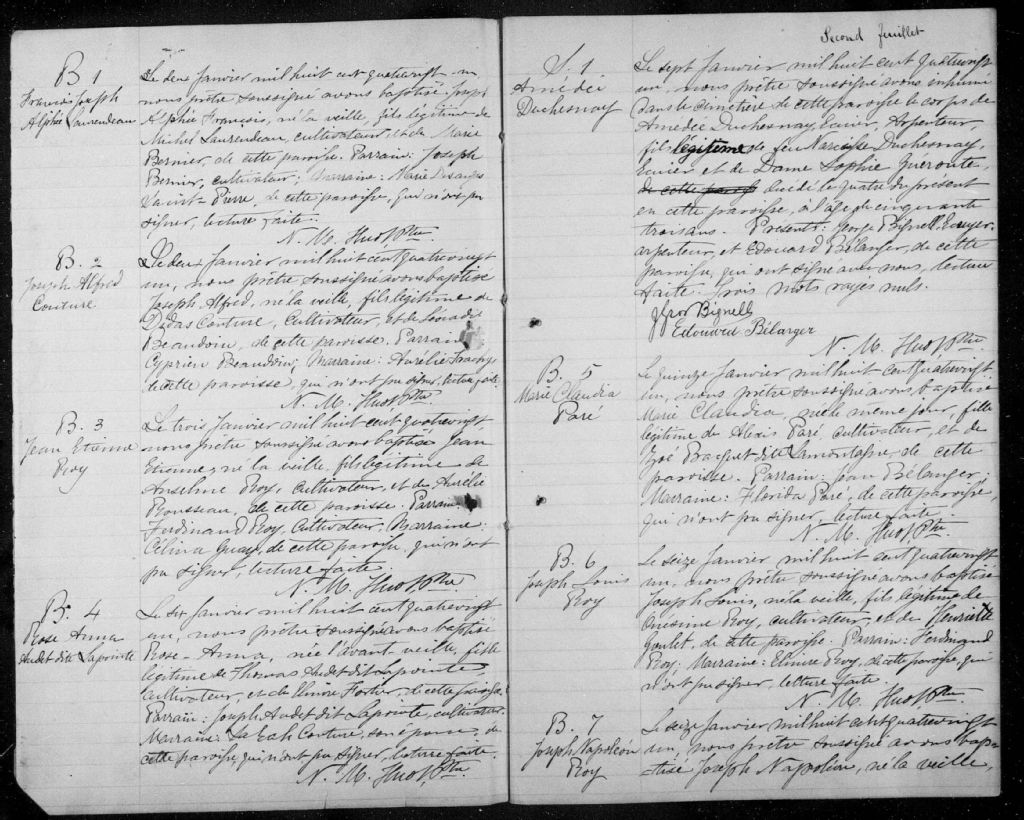 B 1
François Joseph
Alphée Laurendeau
Le deux Janvier mil huit cent quatrevingt un
nous prêtre soussigné avons baptisé Joseph
Alphée François, né la veille, fils légitime de
Michel Laurendeau, cultivateur, et de Marie
Bernier, de cette paroisse. Parrain: Joseph
Bernier, cultivateur; Marraine: Marie Desanges
Saint-Pierre, de cette paroisse, qui n'ont pu
signer, lecture faite.
N. M. Huot Ptre
B. 2
Joseph Alfred
Couture
Le deux Janvier mil huit cent quatrevingt
un, nous prêtre soussigné avons baptisé
Joseph Alfred, né la veille, fils légitime de
Didas Couture, Cultivateur, et de Léocadie
Beaudoin, de cette paroisse. Parrain
Cyprien Beaudoin; Marraine: Aurélie
de cette paroisse, qui n'ont pu signer, lecture faite.
N. M. Huot Ptre
B. 3
Jean Etienne
Roy
Le trois Janvier mil huit cent quatrevingt
nous prêtre soussigné avons baptisé Jean
Etienne, né la veille, fils légitime de
Anselme Roy, cultivateur, et de Aurélie
Rousseau, de cette paroisse. Parrain:
Ferdinand Roy, Cultivateur, Marraine:
Célina Guay, de cette paroisse, qui n'ont
pu signer, lecture faite.
N. M. Huot Ptre
B. 4
Rose Anna
Audet dit Lapointe
Le six Janvier mil huit cent quatrevingt
un, nous prêtre soussigné avons baptisé
Rose-Anna, née l'avant veille, fille
légitime de Thomas Audet dit Lapointe,
cultivateur, et de Fortier, de cette paroisse.
Parrain: Joseph Audet dit Lapointe, cultivateur.
Marraine: Couture, son épouse, de
cette paroisse, qui n'ont pu signer, lecture faite.
N. M. Huot Ptre
Second feuillet
S. 1.
Amédée
Duchesnay
Le sept Janvier mil huit cent quatrevingt
un, nous prêtre soussigné avons inhumé
dans le cimetière de cette paroisse le corps de
Amédée Duchesnay, Ecuier, Arpenteur,
fils légitime de feu Narcisse Duchesnay,
Ecuier et de Dame Sophie Gueroute,
de cette paroisse décédé le quatre du présent
en cette paroisse, à l'âge de cinquante
trois ans. Présents: George Bignell Ecuyer
arpenteur, et Edouard Bélanger, de cette
paroisse, qui ont signé avec nous, lecture
faite. Trois mots rayés nuls.
Bignell
Edouard Bélanger
N. M. Huot Ptre
B. 5
Marie Claudia
Paré
Le quinze Janvier mil huit cent quatrevingt
un, nous prêtre soussigné avons baptisé
Marie Claudia, née le même jour, fille
légitime de Alexis Paré, cultivateur, et de
Zoé Baquet dit Lamontagne, de cette
paroisse. Parrain: Jean Bélanger;
Marraine: Florida Paré, de cette paroisse,
qui n'ont pu signer, lecture faite.
N. M. Huot Ptre
B. 6
Joseph Louis
Roy
Le seize Janvier mil huit cent quatrevingt
un, nous prêtre soussigné avons baptisé
Joseph Louis, né la veille, fils légitime de
Onésime Roy, cultivateur, et de Henriette
Goulet, de cette paroisse. Parrain: Ferdinand
Roy; Marraine: Elmire Roy, de cette paroisse, qui
n'ont pu signer, lecture faite.
N. M. Huot Ptre
B. 7
Joseph Napoléon
Roy
Le seize Janvier mil huit cent quatrevingt
un, nous prêtre soussigné avons bap-
tisé Joseph Napoléon, né la veille,